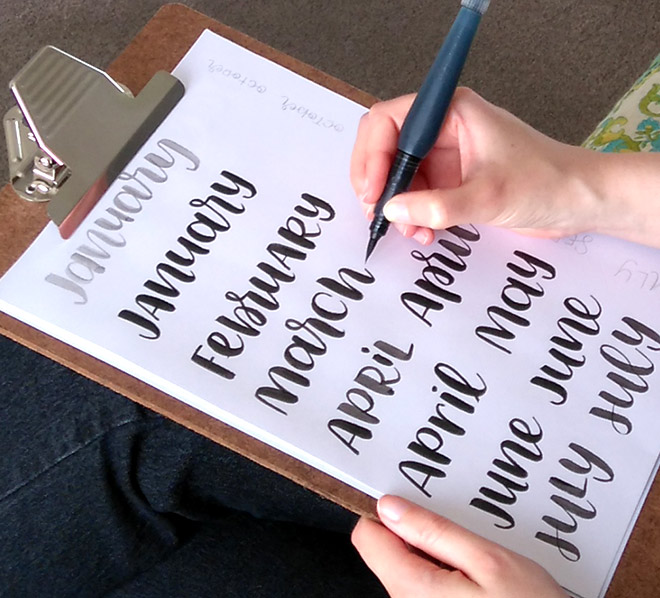 october october
January
January
February
March
April April
April May
June June
July July